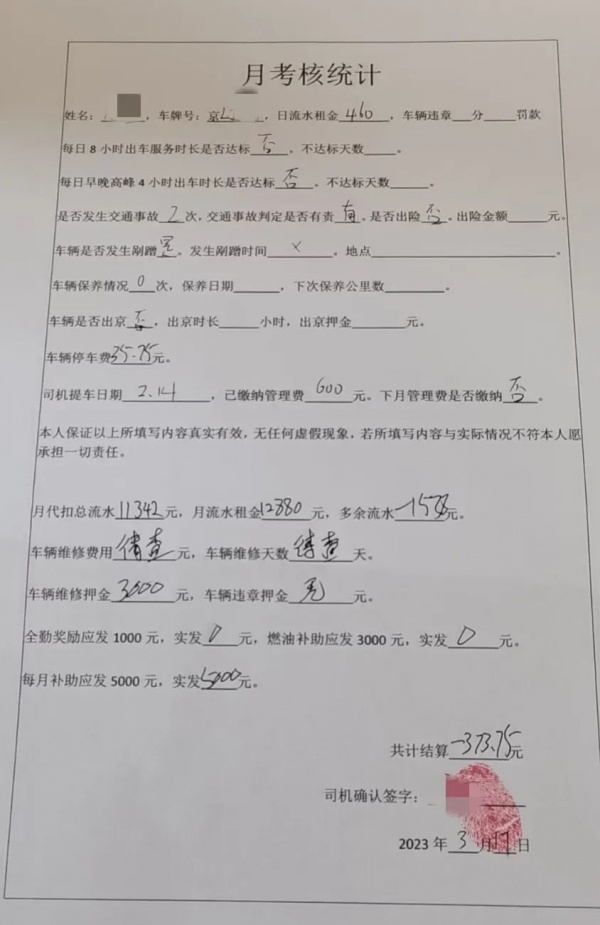 月考核统计
姓名：，车牌号：京L，日流水租金460，车辆违章 分 罚款
每日8小时出车服务时长是否达标否。不达标天数 。
每日早晚高峰4小时出车时长是否达标否。不达标天数 。
是否发生交通事故2次，交通事故判定是否有责有。是否出险否。出险金额 元。
车辆是否发生剐蹭 。发生剐蹭时间 × 。地点 。
车辆保养情况0次，保养日期 ，下次保养公里数 。
车辆是否出京否，出京时长 小时，出京押金 元。
车辆停车费35.75元。
司机提车日期2.14，已缴纳管理费600元。下月管理费是否缴纳否。
本人保证以上所填写内容真实有效，无任何虚假现象，若所填写内容与实际情况不符本人愿
承担一切责任。
月代扣总流水11342元，月流水租金12880元，多余流水-1538元。
车辆维修费用待查元，车辆维修天数待查天。
车辆维修押金3000元，车辆违章押金 元。
全勤奖励应发1000元，实发0元，燃油补助应发3000元，实发0元。
每月补助应发5000元，实发5000元。
共计结算-373.75元
司机确认签字：
2023年3月17日